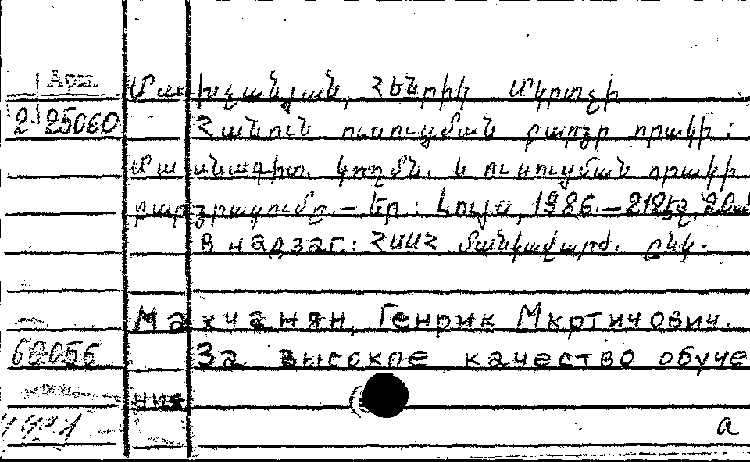 Արտ.
Մախչանյան, Հենրիկ Մկրտչի
2-25060
Հանուն ուսուցման բարձր որակի:
Մասնագիտ. կողմն. և ուսուցման որակի
բարձրացումը – Եր.: Լույս, 1986.– 212 էջ, 20սմ
В надзаг.: ՀՍՍՀ մանկավարժ. ընկ.
Махчанян, Генрик Мкртичович.
60056 За высокое качество обуче
ния
а